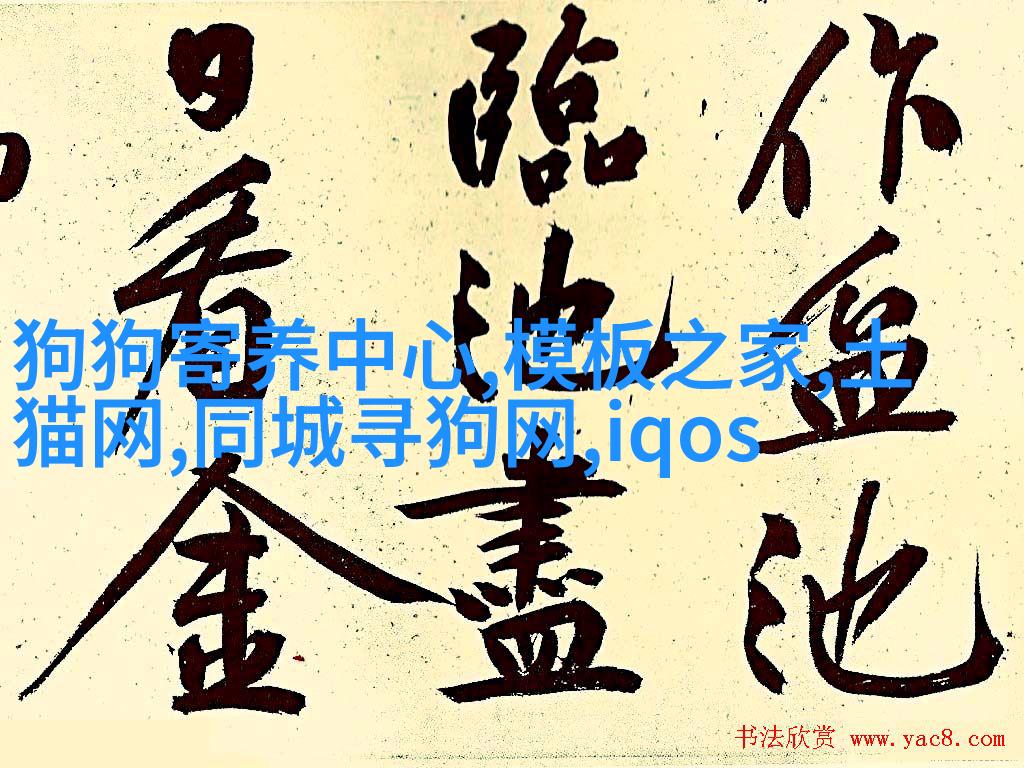 作盆池
臨池盡
日看金
狗狗寄养中心,模板之家,土
猫网,同城寻狗网,iqos
书法欣赏 www.yac8.com